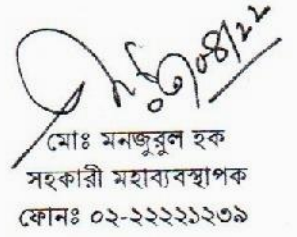 08/22
মোঃ মনজুরুল হক
সহকারী মহাব্যবস্থাপক
ফোনঃ ০২-২২২২১২৩৯